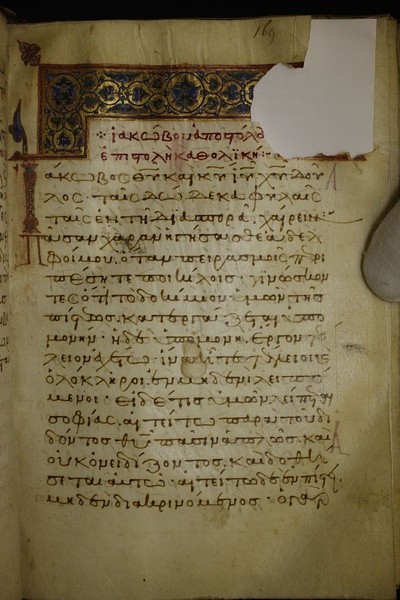 169
ἰακώβου ἀποστόλ
ἐπιστολὴ καθολϊκή:
Ἰάκωβος θυ και κυ ιυ χυ δου
λος· ταῖς δώδεκα φυλαῖς
ταῖς ἐν τῆ διασπορᾶ· χαίρειν:
Πᾶσαν χαρὰν ἡγήσασθε ἀδελ
φοί μου, ὅταν πειρασμοῖς περι
πέσητε ποικίλοις· γινώσκον
τες ὅτι τὸ δοκίμιον ὑμῶν τῆς
πίστεως· κατεργάζεται ὑπο
μονήν· ἡ δὲ ὑπομονὴ, ἔργον τέ
λειον ἐχέτω· ἵνα ἦτε τέλειοι κ
ὁλόκληροι, ἐν μηδενὶ λειπό
μενοι· εἰ δέ τις ὑμῶν λείπεται
σοφίας, αἰτείτω παρὰ τοῦ δι
δόντος θυ πᾶσιν ἁπλῶς· και
οὐκ ὀνειδίζοντος· καὶ δοθή
σεται αὐτῶ· αἰτείτω δὲ ἐν πίστει·
μηδὲν διακρινόμενος· ὁ γὰρ